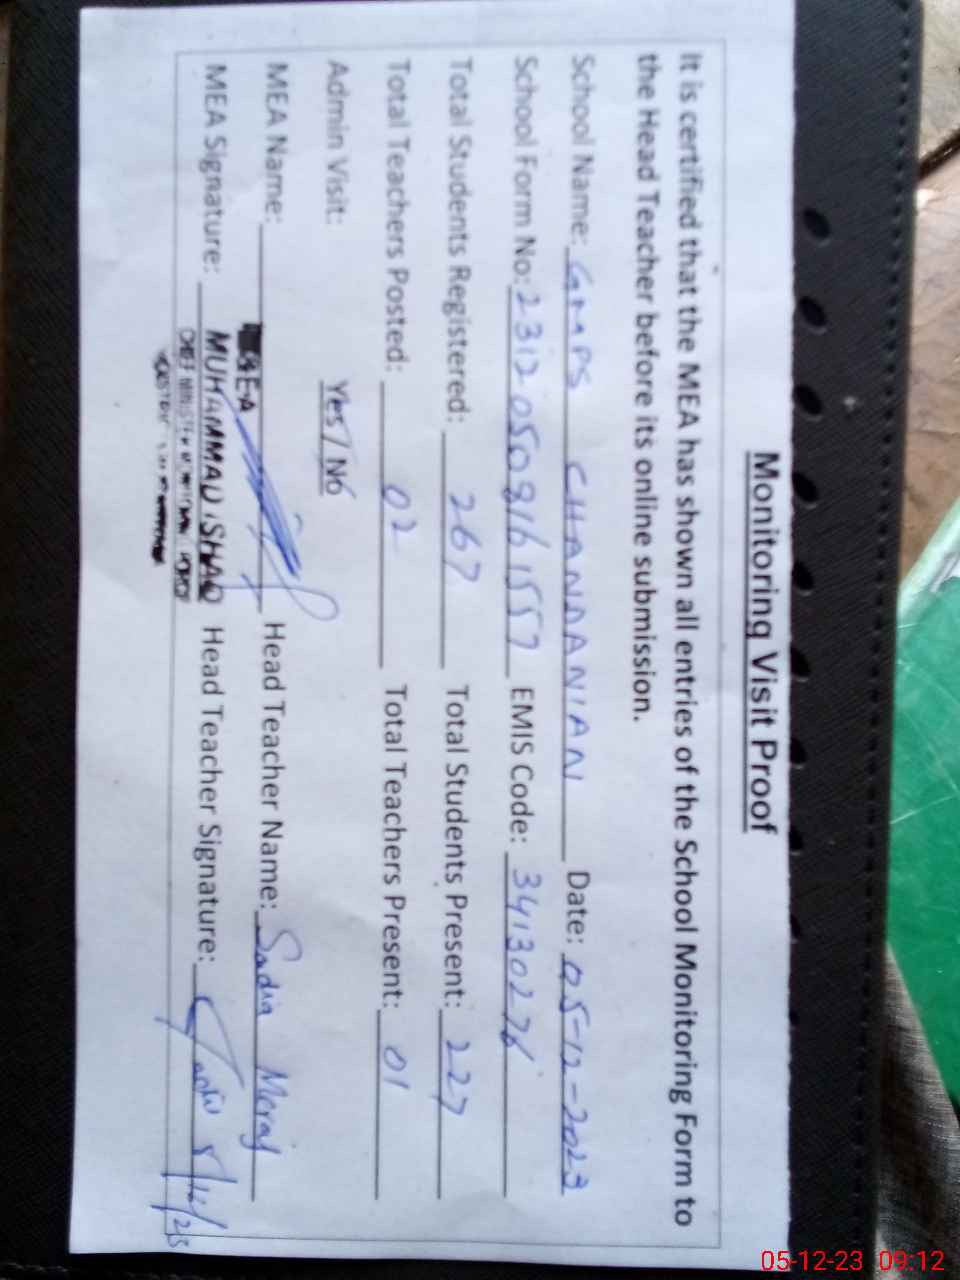 Monitoring Visit Proof
It is certified that the MEA has shown all entries of the School Monitoring Form to
the Head Teacher before its online submission.
School Name: GMPS CHANDANIAN Date: 05-12-2023
School Form No: 23120508161557 EMIS Code: 34130276
Total Students Registered: 267 Total Students Present: 227
Total Teachers Posted: 02 Total Teachers Present: 01
Admin Visit: Yes / No
MEA Name: Head Teacher Name: Sadia Meraj
MEA Signature: MUHAMMAD ISHAQ Head Teacher Signature:
MEA
CHIEF MINISTER
05-12-23 09:12